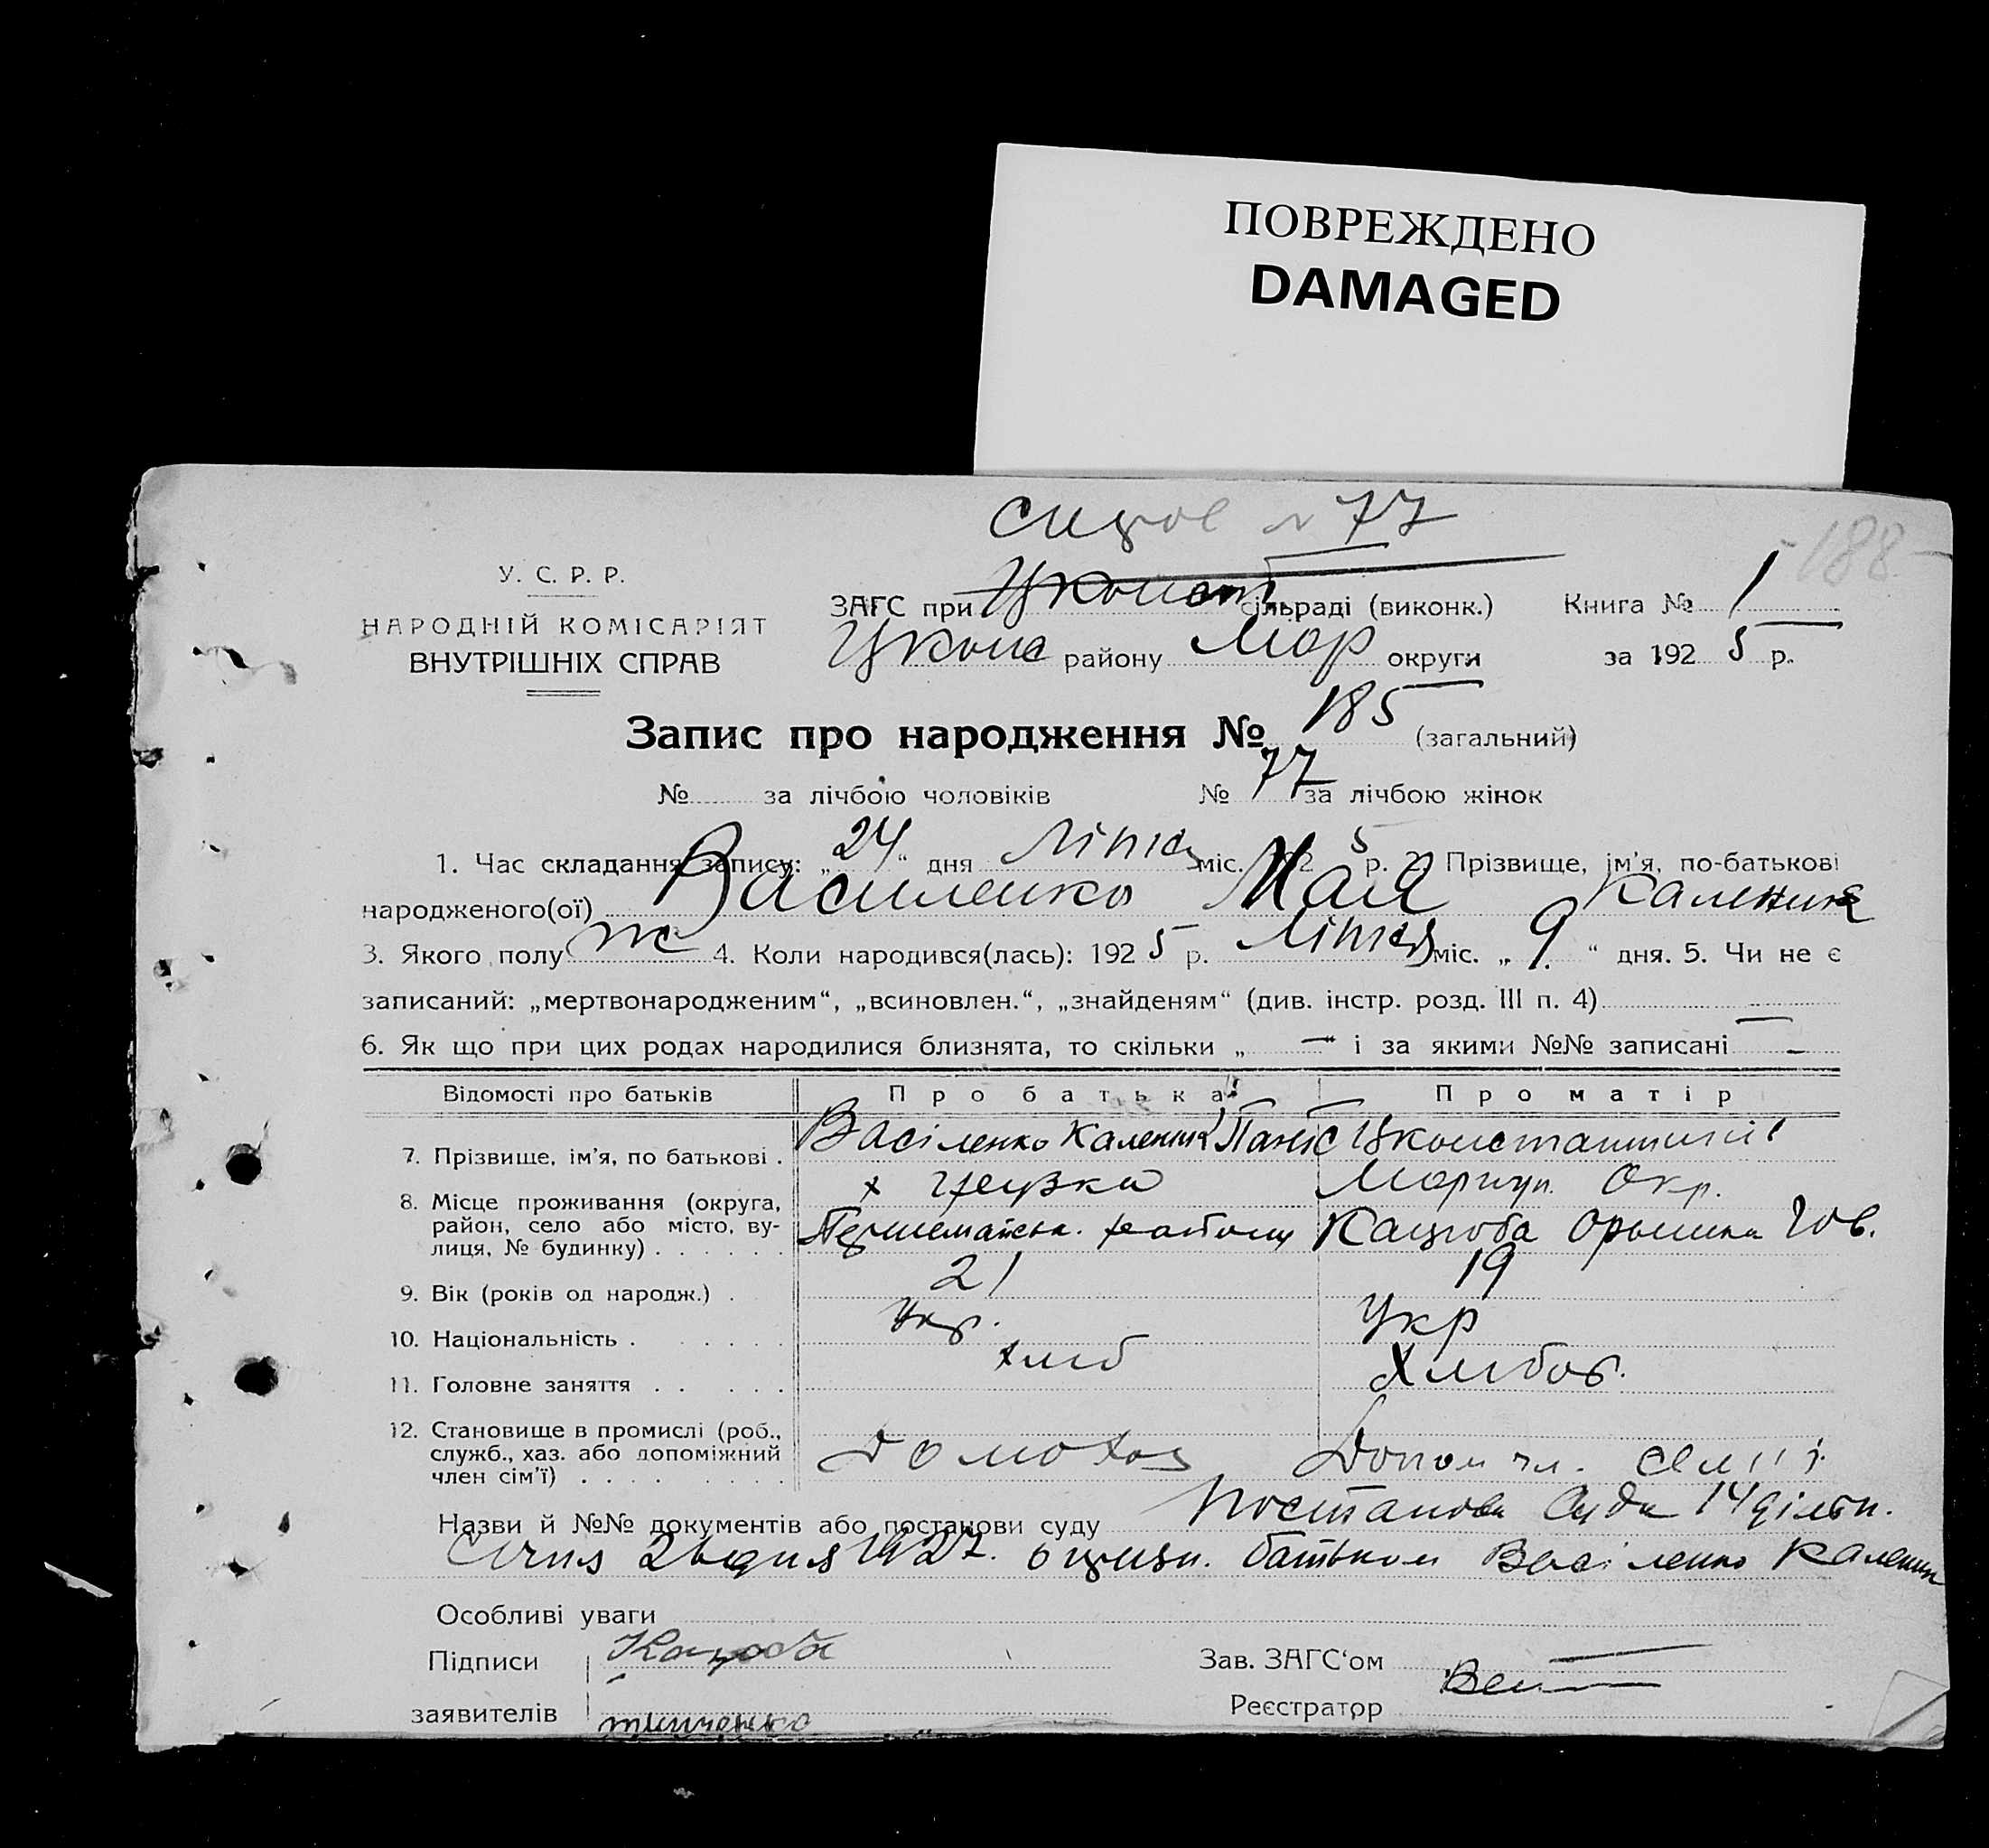 ПОВРЕЖДЕНО
DAMAGED
№ 77
-188-
У. С. Р. Р.
НАРОДНІЙ КОМІСАРІЯТ
ВНУТРІШНІХ СПРАВ
ЗАГС при Цконст сільраді (виконк.) Книга № 1
Цконс району Мар округи за 192 5 р.
Запис про народження № 185 (загальний)
№ за лічбою чоловіків № 77 за лічбою жінок
1. Час складання запису: „ 24 “ дня Літня міс. 192 5 р. 2. Прізвище, ім’я, по-батькові
народженого(ої) Василенко Мая Каленик
3. Якого полу ж 4. Коли народився(лась): 192 5 р. Літня міс. „ 9 “ дня. 5. Чи не є
записаний: „мертвонародженим“, „всиновлен.“, „знайденям“ (див. інстр. розд. III п. 4) —
6. Як що при цих родах народилися близнята, то скільки „ — “ і за якими №№ записані —
Відомості про батьків Про батька Про матір
7. Прізвище, ім’я, по батькові . Василенко Каленик Цконстантинів
8. Місце проживання (округа, район, село або місто, вулиця, № будинку) х Грузка Першемайськ. району Маріуп. Окр. Кацюба Орышка
9. Вік (років од народж.) . 21 19
10. Національність . Укр. Укр
11. Головне заняття . . хліб Хлибор.
12. Становище в промислі (роб., служб., хаз. або допоміжний член сім’ї) Домохаз Допом чл. семії
Назви й №№ документів або постанови суду Постанова Суда 14 дільн.
Січня 26 дня 1927. о признн. батьком Василенко Каленик
Особливі уваги
Підписи Кацюба Зав. ЗАГС‘ом
заявителів Реєстратор